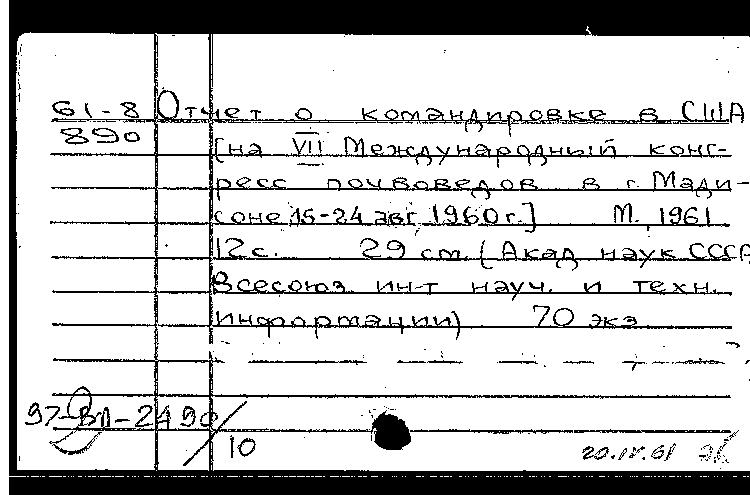 61-8 Отчет о командировке в США
890 [на VII Международный конг-
ресс почвоведов в г. Мади-
соне 15-24 авг. 1960 г.] М., 1961
12 с. 29 см. (Акад. наук СССР
Всесоюз. ин-т науч. и техн.
информации) 70 экз.
97-ВЛ-2490/10
20.IV.61